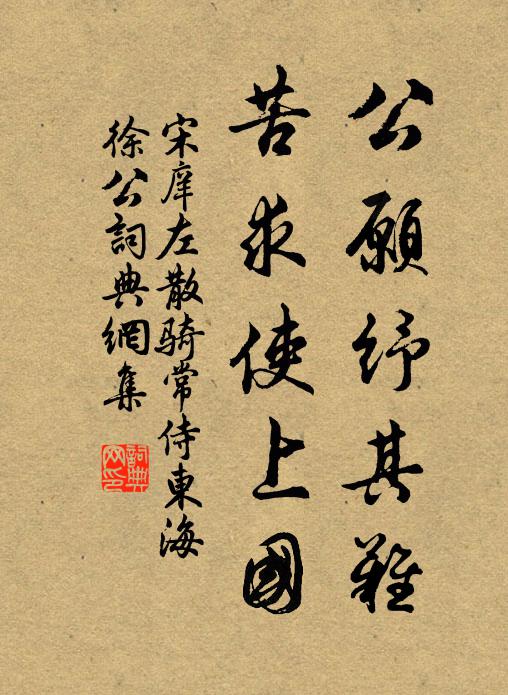 公願紓其難
苦求使上國
宋庠左散骑常侍東海
徐公詞典網集
詞典
网印